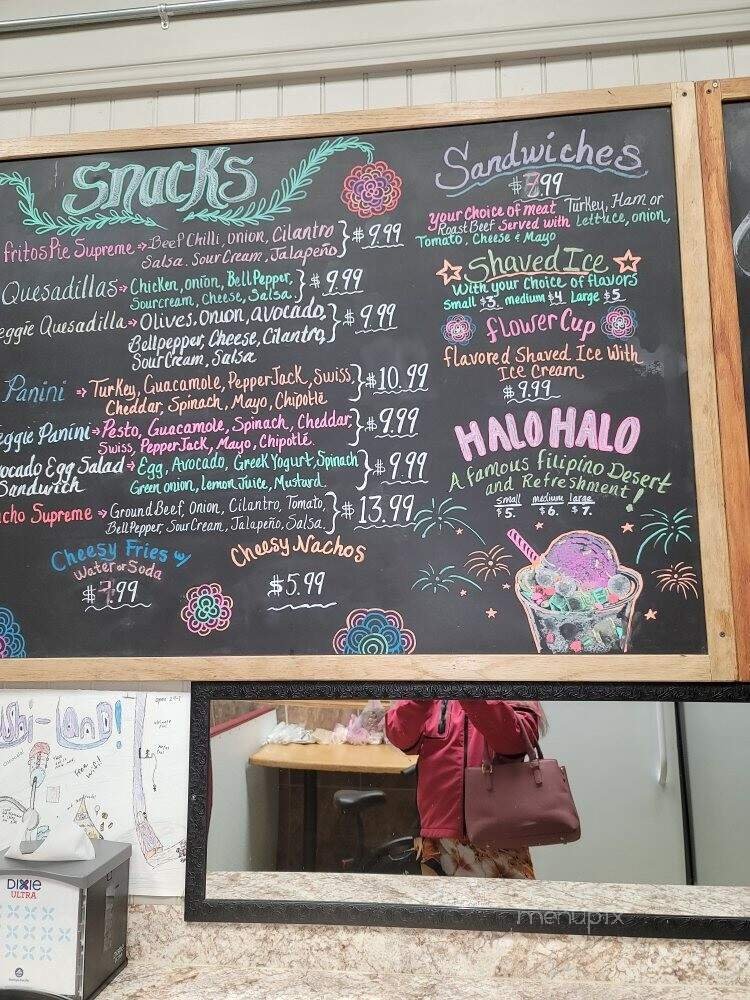 Snacks
fritos Pie Supreme → Beef Chilli, onion, Cilantro
Salsa. Sour Cream, Jalapeño
$9.99
Quesadillas → Chicken, onion, Bell Pepper,
Sourcream, Cheese, Salsa.
$9.99
eggie Quesadilla → Olives, onion, avocado,
Bellpepper, Cheese, Cilantro,
Sour Cream, Salsa
$9.99
Panini → Turkey, Guacamole, Pepper Jack, Swiss,
Cheddar, Spinach, Mayo, Chipotle
$10.99
eggie Panini → Pesto, Guacamole, Spinach, Cheddar,
Swiss, Pepper Jack, Mayo, Chipotle.
$9.99
ocado Egg Salad → Egg, Avocado, Greek Yogurt, Spinach
Sandwich Green onion, Lemon Juice, Mustard.
$9.99
cho Supreme → Ground Beef, Onion, Cilantro, Tomato,
Bell Pepper, Sour Cream, Jalapeño, Salsa.
$13.99
Cheesy Fries w/
Water or Soda
Cheesy Nachos
$5.99
Sandwiches
your Choice of meat Turkey, Ham or
Roast Beef Served with Lettuce, onion,
Tomato, Cheese & Mayo
Shaved Ice
With your Choice of flavors
Small $3. medium $4 Large $5
flower Cup
flavored Shaved Ice With
Ice Cream
$9.99
HALO HALO
A famous filipino Desert
and Refreshment!
small medium large
$5. $6. $7.
Land!
DIXIE
ULTRA
menupix